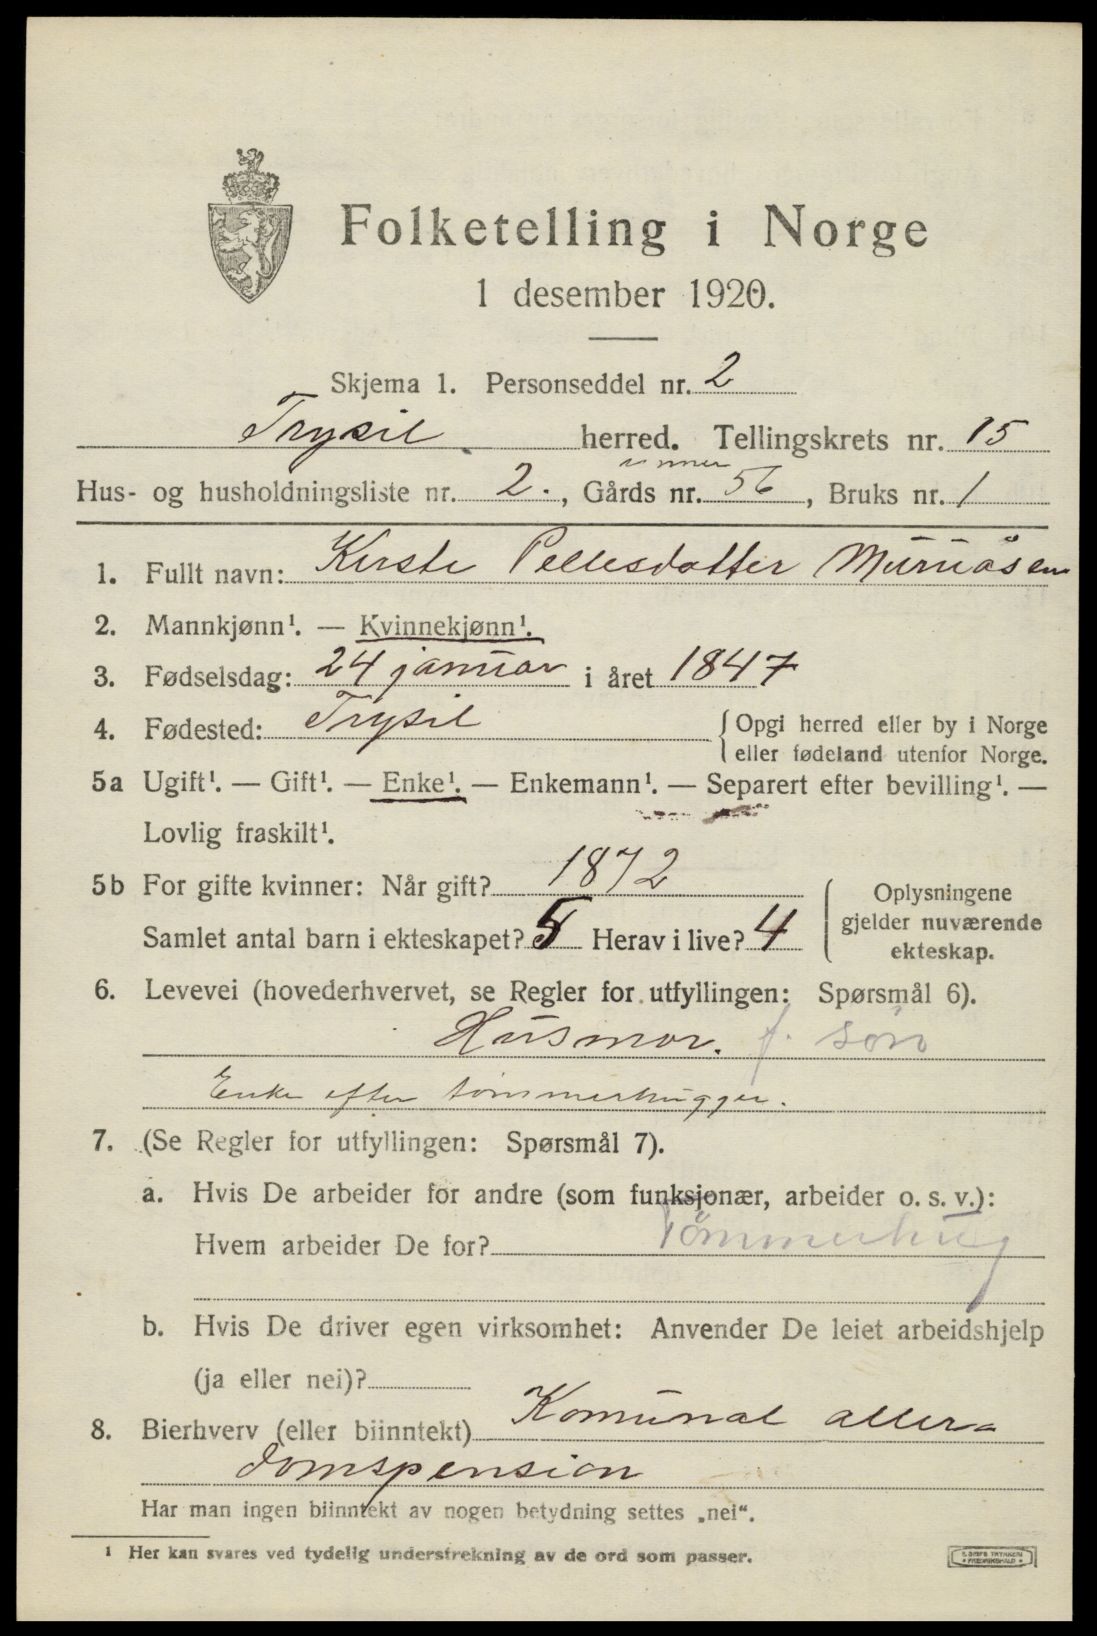 Folketelling i Norge
1 desember 1920.
Skjema 1. Personseddel nr. 2
Trysil herred. Tellingskrets nr. 15
Hus- og husholdningsliste nr. 2., Gårds nr. 56, Bruks nr. 1
1. Fullt navn: Kirsti Pellesdatter Murúåsen
2. Mannkjønn¹. — Kvinnekjønn¹.
3. Fødselsdag: 24 januar i året 1847
4. Fødested: Trysil {Opgi herred eller by i Norge
eller fødeland utenfor Norge.
5a Ugift¹. — Gift¹. — Enke¹. — Enkemann¹. — Separert efter bevilling¹. —
Lovlig fraskilt¹.
5b For gifte kvinner: Når gift? 1872
Samlet antal barn i ekteskapet? 5 Herav i live? 4
Oplysningene
gjelder nuværende
ekteskap.
6. Levevei (hovederhvervet, se Regler for utfyllingen: Spørsmål 6).
Husmor. f. søn
Enke efter tømmerhugger.
7. (Se Regler for utfyllingen: Spørsmål 7).
a. Hvis De arbeider for andre (som funksjonær, arbeider o. s. v.):
Hvem arbeider De for? Tømmerhug
b. Hvis De driver egen virksomhet: Anvender De leiet arbeidshjelp
(ja eller nei)?
8. Bierhverv (eller biinntekt) Komunal aller=
domspension
Har man ingen biinntekt av nogen betydning settes „nei“.
¹ Her kan svares ved tydelig understrekning av de ord som passer.